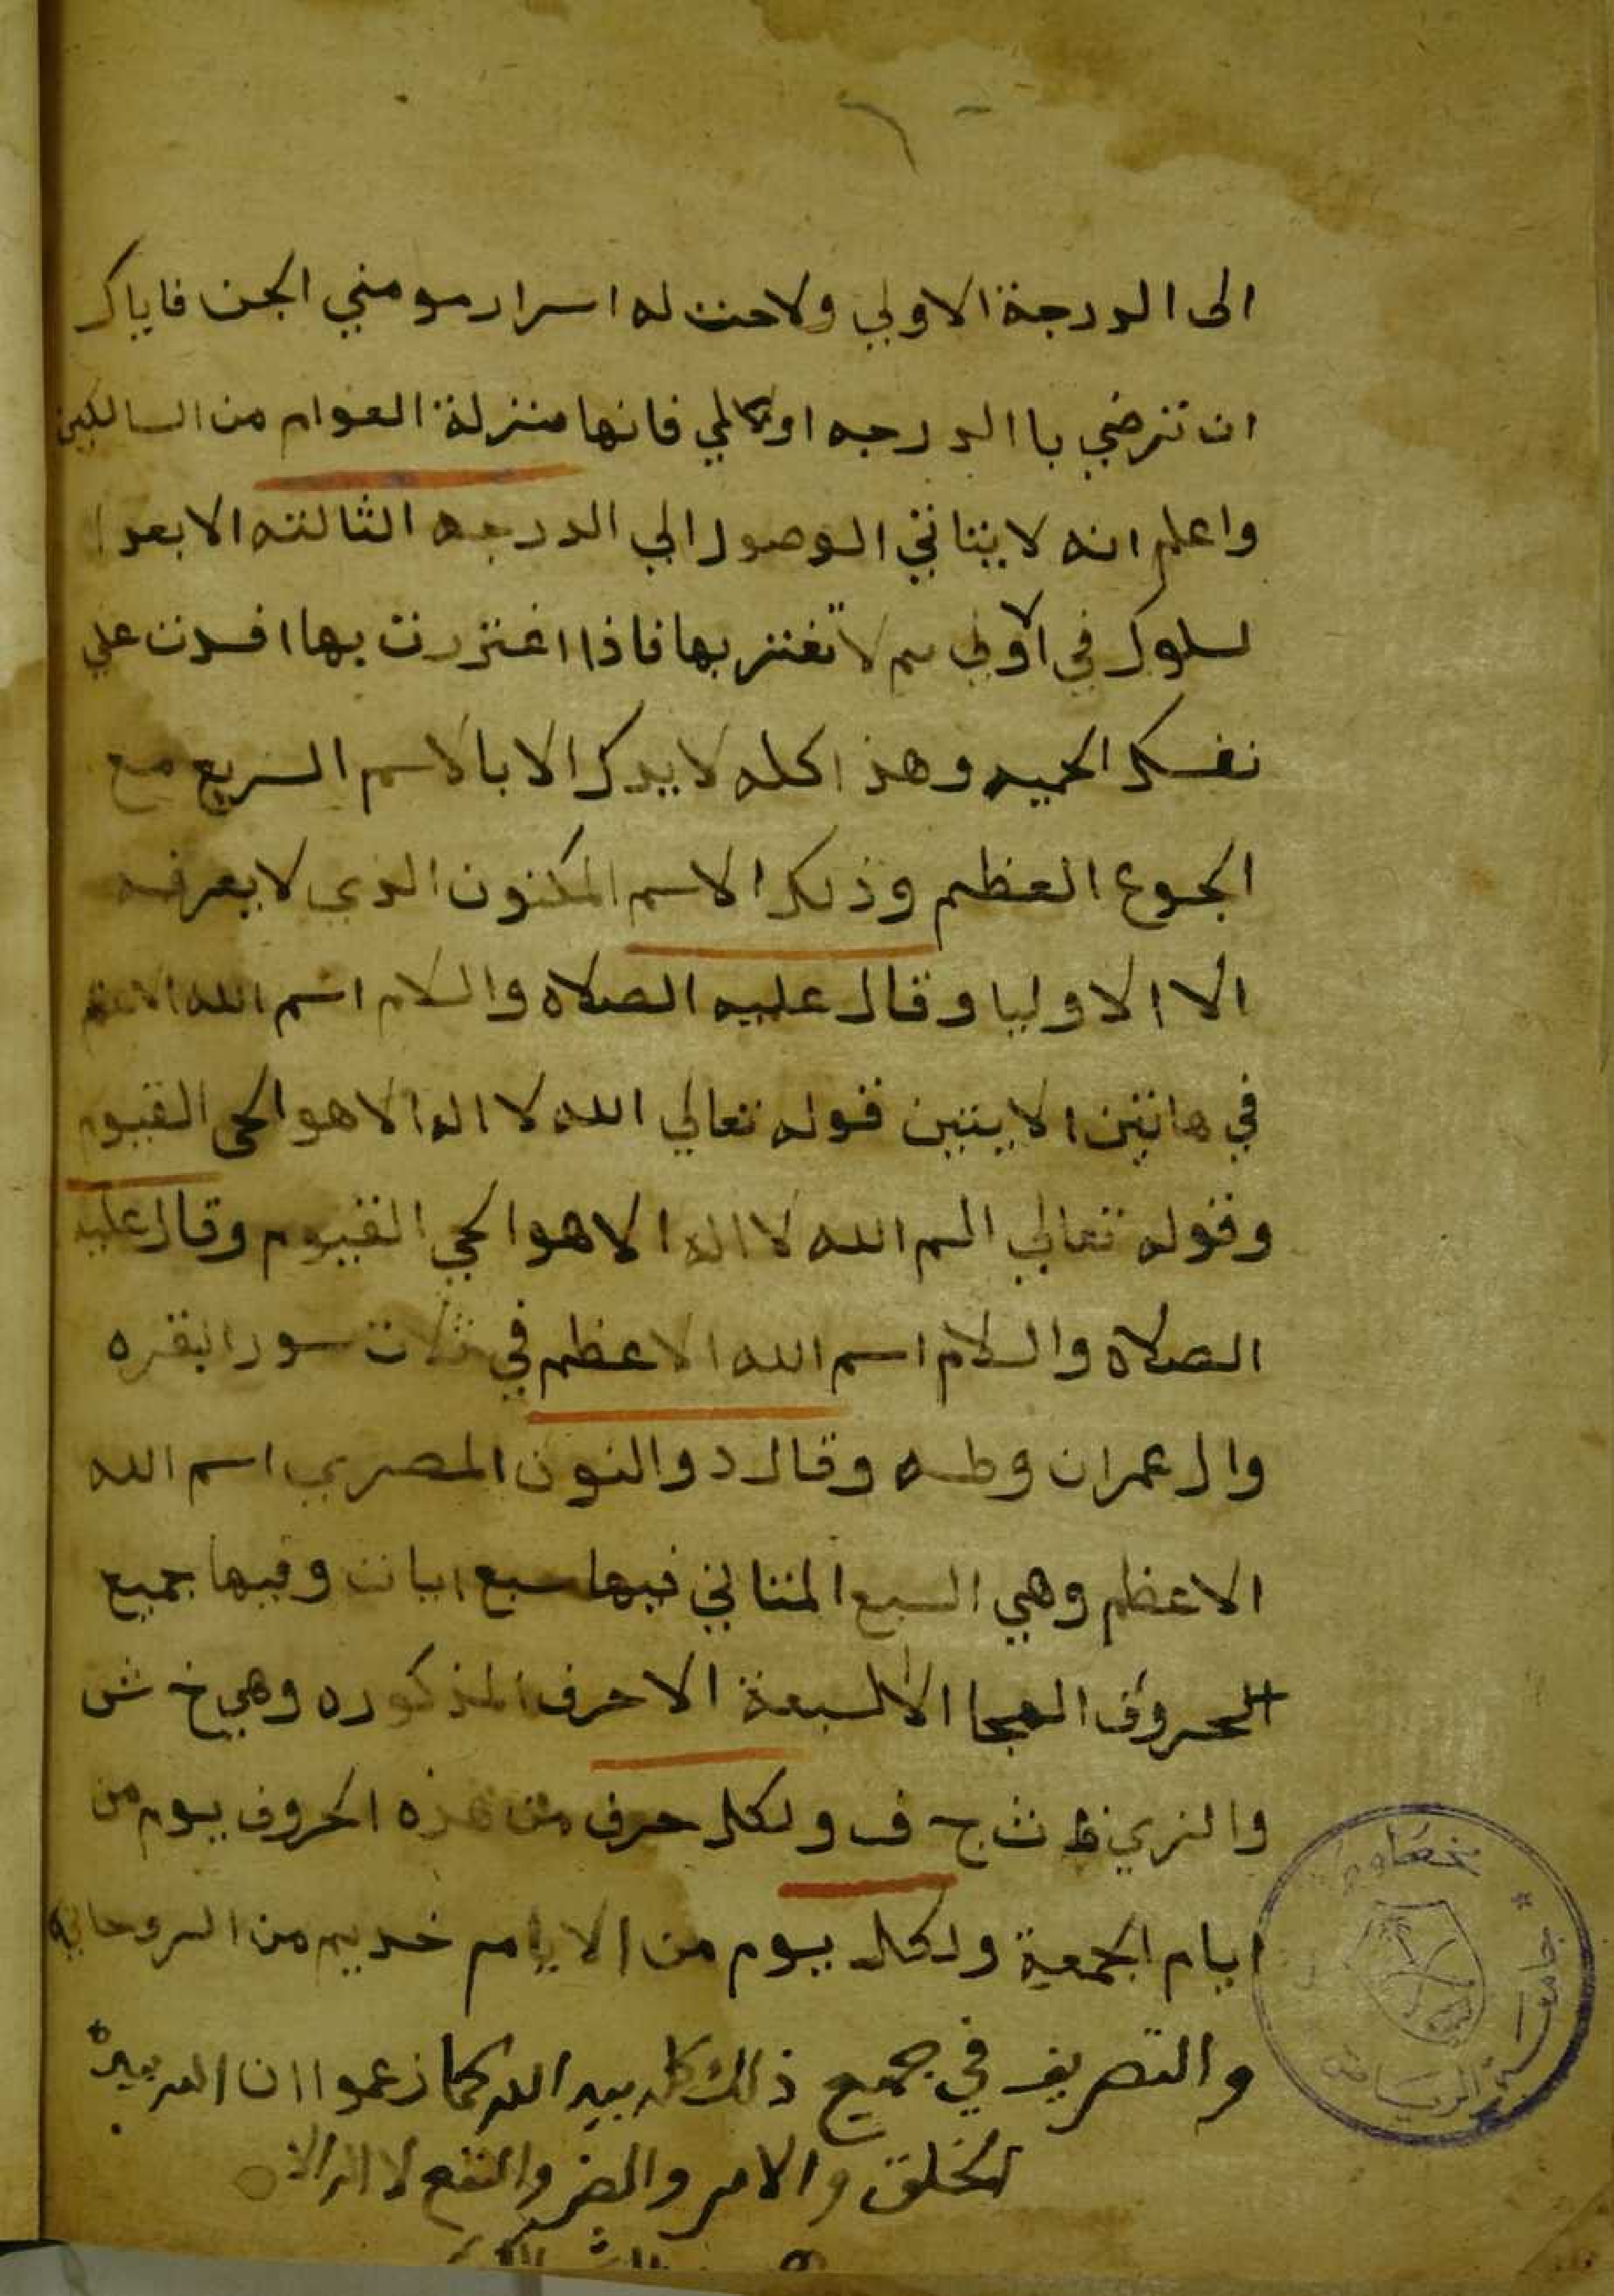 الى الدرجة الاولي ولاحت له اسرار مومني الجن فاياك
ان ترضي با الدرجه اولالي فانها منزلة العوام من السالكين
واعلم انه لا يتاتي الوصول الي الدرجه الثالثه الا بعد ا
لسلوك في الاولي ثم لا تغتر بها فاذا اغتررت بها افسدت علي
نفسك الحميه وهذا كله لا يدرك الا بالاسم السريع مع
الجوع العظيم وذلك الاسم المكنون الذي لا يعرفه
الا الاوليا وقال عليه الصلاه والسلام اسم الله الاعظم
في هاتين الايتين قوله تعالي الله لا اله الا هو الحى القيوم
وقوله تعالي الم الله لا اله الا هو الحي القيوم وقال عليه
الصلاه والسلام اسم الله الاعظم في ثلاث سور البقره
وال عمران وطه وقال دوالنون المصري اسم الله
الاعظم وهي السبع المثاني فيها سبع ايات وفيها جميع
الحروف الهجا الا السبعة الاحرف المذكوره وهي خ ش
والزي ظ ث ج ف ولكل حرف من هذه الحروف يوم من
ايام الجمعية ولكل يوم من الايام خديم من الروحانيه
والتصريف في جميع ذلك كله بيد الله كما زعموا ان الله بيده
الخلق والامر والضر والنفع لا اله الا
جامعة الرياض